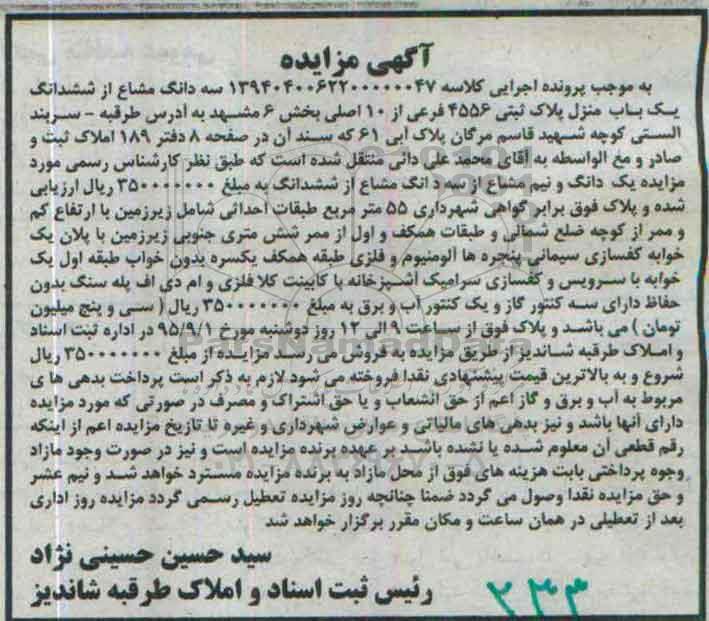 آگهی مزایده
به موجب پرونده اجرایی کلاسه ۱۳۹۴۰۴۰۰۶۲۲۰۰۰۰۰۰۴۷ سه دانگ مشاع از ششدانگ
یک باب منزل پلاک ثبتی ۴۵۵۶ فرعی از ۱۰ اصلی بخش ۶ مشهد به آدرس طرقبه - سربند
الستی کوچه شهید قاسم مرگان پلاک آبی ۶۱ که سند آن در صفحه ۸ دفتر ۱۸۹ املاک ثبت و
صادر و مع الواسطه به آقای محمد علی دائی منتقل شده است که طبق نظر کارشناس رسمی مورد
مزایده یک دانگ و نیم مشاع از سه دانگ مشاع از ششدانگ به مبلغ ۳۵۰۰۰۰۰۰۰ ریال ارزیابی
شده و پلاک فوق برابر گواهی شهرداری ۵۵ متر مربع طبقات احداثی شامل زیرزمین با ارتفاع کم
و ممر از کوچه ضلع شمالی و طبقات همکف و اول از ممر شش متری جنوبی زیرزمین با پلان یک
خوابه کفسازی سیمانی پنجره ها آلومنیوم و فلزی طبقه همکف یکسره بدون خواب طبقه اول یک
خوابه با سرویس و کفسازی سرامیک آشپزخانه با کابینت کلا فلزی و ام دی اف پله سنگ بدون
حفاظ دارای سه کنتور گاز و یک کنتور آب و برق به مبلغ ۳۵۰۰۰۰۰۰۰ ریال ( سی و پنج میلیون
تومان ) می باشد و پلاک فوق از ساعت ۹ الی ۱۲ روز دوشنبه مورخ ۹۵/۹/۱ در اداره ثبت اسناد
و املاک طرقبه شاندیز از طریق مزایده به فروش می رسد مزایده از مبلغ ۳۵۰۰۰۰۰۰۰ ریال
شروع و به بالاترین قیمت پیشنهادی نقدا فروخته می شود لازم به ذکر است پرداخت بدهی های
مربوط به آب و برق و گاز اعم از حق انشعاب و یا حق اشتراک و مصرف در صورتی که مورد مزایده
دارای آنها باشد و نیز بدهی های مالیاتی و عوارض شهرداری و غیره تا تاریخ مزایده اعم از اینکه
رقم قطعی آن معلوم شده یا نشده باشد بر عهده برنده مزایده است و نیز در صورت وجود مازاد
وجوه پرداختی بابت هزینه های فوق از محل مازاد به برنده مزایده مسترد خواهد شد و نیم عشر
و حق مزایده نقدا وصول می گردد ضمنا چنانچه روز مزایده تعطیل رسمی گردد مزایده روز اداری
بعد از تعطیلی در همان ساعت و مکان مقرر برگزار خواهد شد
سید حسین حسینی نژاد
رئیس ثبت اسناد و املاک طرقبه شاندیز
۲۳۳
ParsNamadData